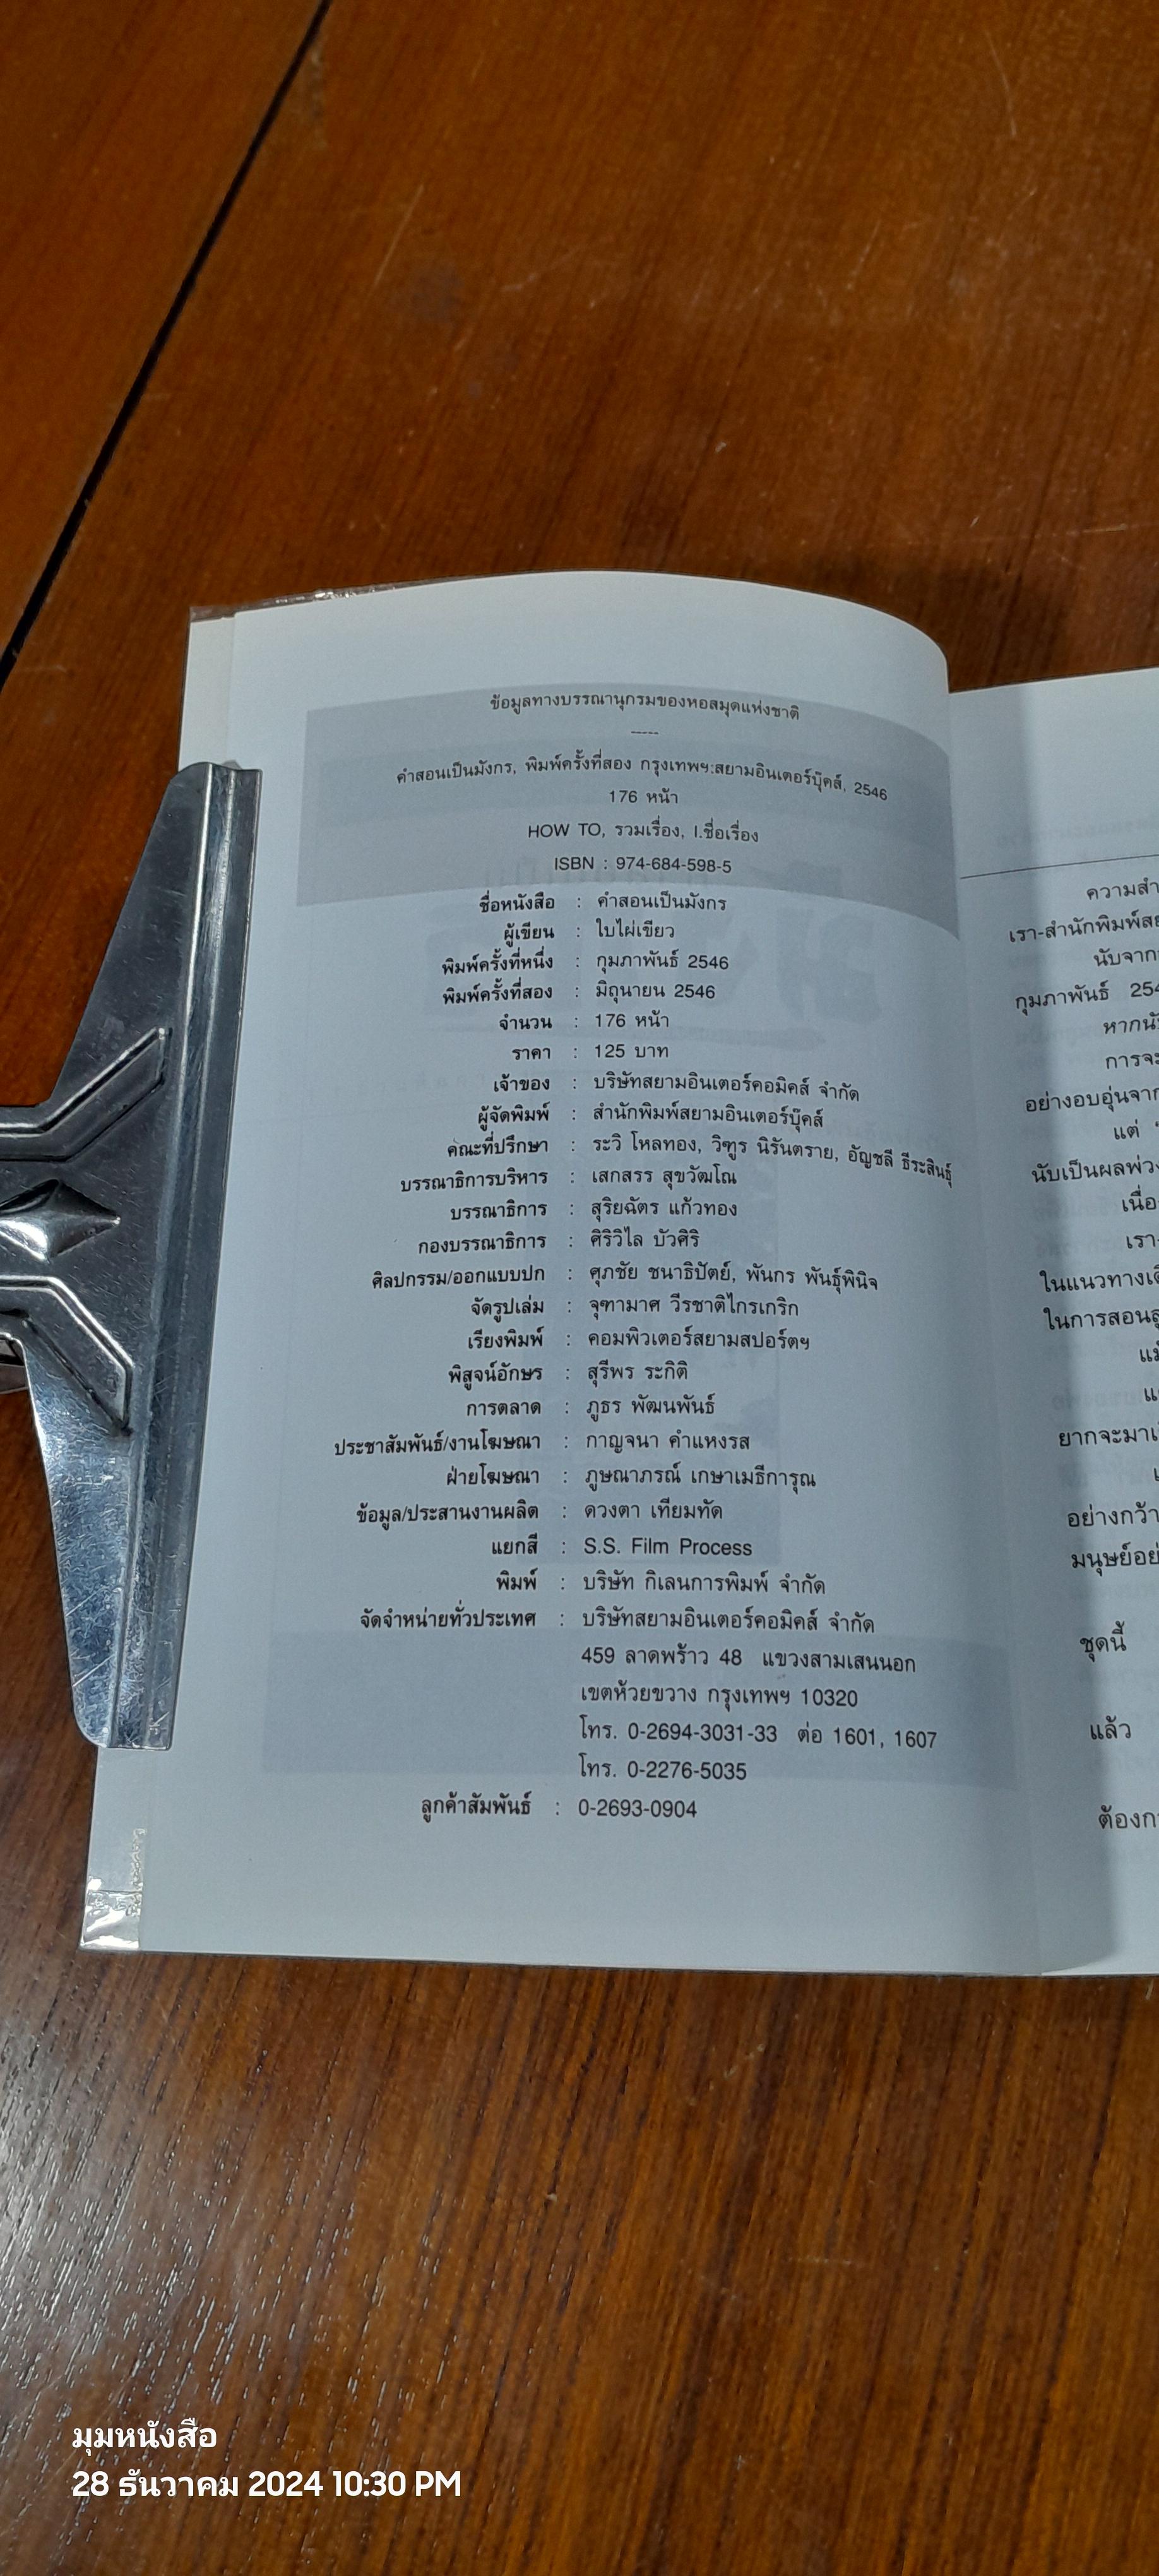 ข้อมูลทางบรรณานุกรมของหอสมุดแห่งชาติ
-----
คำสอนเป็นมังกร, พิมพ์ครั้งที่สอง กรุงเทพฯ:สยามอินเตอร์บุ๊คส์, 2546
176 หน้า
HOW TO, รวมเรื่อง, I.ชื่อเรื่อง
ISBN : 974-684-598-5
ชื่อหนังสือ : คำสอนเป็นมังกร
ผู้เขียน : ใบไผ่เขียว
พิมพ์ครั้งที่หนึ่ง : กุมภาพันธ์ 2546
พิมพ์ครั้งที่สอง : มิถุนายน 2546
จำนวน : 176 หน้า
ราคา : 125 บาท
เจ้าของ : บริษัทสยามอินเตอร์คอมิคส์ จำกัด
ผู้จัดพิมพ์ : สำนักพิมพ์สยามอินเตอร์บุ๊คส์
คณะที่ปรึกษา : ระวิ โหลทอง, วิฑูร นิรันตราย, อัญชลี ธีระสินธุ์
บรรณาธิการบริหาร : เสกสรร สุขวัฒโณ
บรรณาธิการ : สุริยฉัตร แก้วทอง
กองบรรณาธิการ : ศิริวิไล บัวศิริ
ศิลปกรรม/ออกแบบปก : ศุภชัย ชนาธิปัตย์, พันกร พันธุ์พินิจ
จัดรูปเล่ม : จุฑามาศ วีรชาติไกรเกริก
เรียงพิมพ์ : คอมพิวเตอร์สยามสปอร์ตฯ
พิสูจน์อักษร : สุรีพร ระกิติ
การตลาด : ภูธร พัฒนพันธ์
ประชาสัมพันธ์/งานโฆษณา : กาญจนา คำแหงรส
ฝ่ายโฆษณา : ภูษณาภรณ์ เกษาเมธีการุณ
ข้อมูล/ประสานงานผลิต : ดวงตา เทียมทัด
แยกสี : S.S. Film Process
พิมพ์ : บริษัท กิเลนการพิมพ์ จำกัด
จัดจำหน่ายทั่วประเทศ : บริษัทสยามอินเตอร์คอมิคส์ จำกัด
459 ลาดพร้าว 48 แขวงสามเสนนอก
เขตห้วยขวาง กรุงเทพฯ 10320
โทร. 0-2694-3031-33 ต่อ 1601, 1607
โทร. 0-2276-5035
ลูกค้าสัมพันธ์ : 0-2693-0904
ความสำ
เรา-สำนักพิมพ์สย
นับจาก
กุมภาพันธ์ 254
หากนั
การจะ
อย่างอบอุ่นจาก
แต่ "
นับเป็นผลพ่วง
เนื่อ
เรา-
ในแนวทางเดี
ในการสอนลู
แม้
แ
ยากจะมาเ
เ
อย่างกว้า
มนุษย์อย่
ชุดนี้
แล้ว
ต้องก
มุมหนังสือ
28 ธันวาคม 2024 10:30 PM